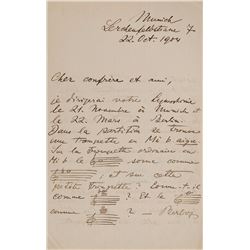 Munich
Lerchenfeldstrasse 7
22 Oct. 1904
Cher confrère et ami,
je dirigerai votre Symphonie
le 21 Novembre à Munich et
le 22 Mars à Berlin.
Dans la partition se trouve
une trompette en Mi b aigu.
Sur la trompette ordinaire en
Mi b le sonne comme
; et sur cette
petite trompette? Sonne-t-il
comme ? Et le
comme ? —